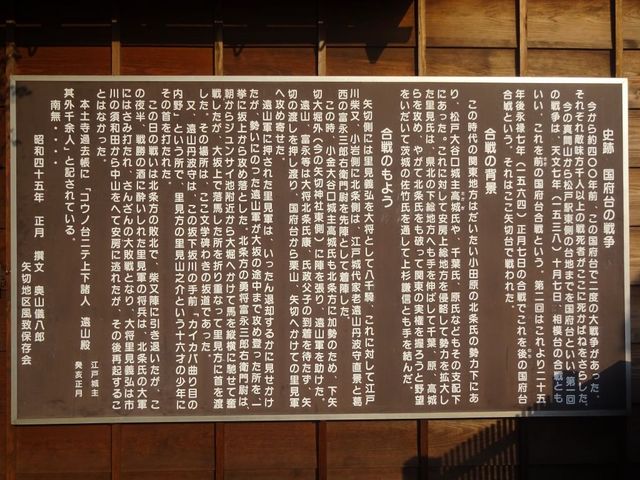 史跡　国府台の戦争
今から約四〇〇年前、この国府台で二度の大戦争があった。
それぞれ敵味方千人以上の戦死者がここに死かばねをさらした。
今の真間山から松戸駅東側の台地までを国府台といい、第一回
の戦争は、天文七年（一五三八）十月七日、相模台の合戦とも
いい、これを前の国府台合戦という。第二回はこれより二十五
年後永禄七年（一五六四）正月七日の合戦でこれを後の国府台
合戦という。それはここ矢切台で戦われた。
合戦の背景
この時代の関東地方はだいたい小田原の北条氏の勢力下にあ
り、松戸大谷口城主高城氏や、千葉氏、原氏などもその支配下
にあった。これに対して安房上総地方を侵略して勢力を拡大し
た里見氏は、県北の下総地方へも手を伸ばして千葉、原、高城
らを攻め、やがて北条氏をも破って関東の実権を握ろうと野望
をいだいて茨城の佐竹氏を通して上杉謙信とも手を結んだ。
合戦のもよう
矢切側には里見義弘を大将として八千騎、これに対して江戸
川柴又、小岩側に北条側は、江戸城代家老遠山丹波守直景と葛
西の富永三郎右衛門尉を先陣として布陣した。
この時、小金大谷口城主高城氏も北条方に加勢のため、下矢
切大堀外（今の矢切神社東側）に陣を張り、遠山軍を助けた。
遠山、富永等は大将北条氏康、氏政父子の到着を待たず、矢
切の渡しを押し渡り、国府台から栗山、矢切へかけての里見軍
へ攻めよせた。
遠山軍に押された里見軍は、いったん退却するかに見せかけ
たが、勢いにのった遠山軍が大坂の途中まで攻め登った所を一
挙に坂上から攻め落とした。北条方の勇将富永三郎右衛門尉は、
朝からジュンサイ池附近から大堀へかけて馬を縦横に馳せて奮
戦したが、大坂上で落馬した所を折り重なって里見方に首を渡
した。その場所は、ここの文学碑わきの坂道であった。
又、遠山丹波守は、この坂下坂川の手前「カイカバ曲り目の
内野」という所で、里見方の里見山之介という十六才の少年に
その首を打たれた。
この日の戦いは北条方の敗北で、柴又陣に引き退いたが、こ
の夜半、戦勝の酒に酔いしれた里見軍の将兵は、北条氏の大軍
にはさみ打たれ、さんざんの大敗戦となり、大将里見義弘は市
川の須和田から中山をへて安房に逃れたが、その後再起するこ
とはなかった。
本土寺過去帳に「コウノ台ニテ上下諸人　遠山殿　江戸城主　癸亥正月
其外千余人」と記されている。
南無・・・・
昭和四十五年　正月　撰文　奥山儀八郎
矢切地区風致保存会